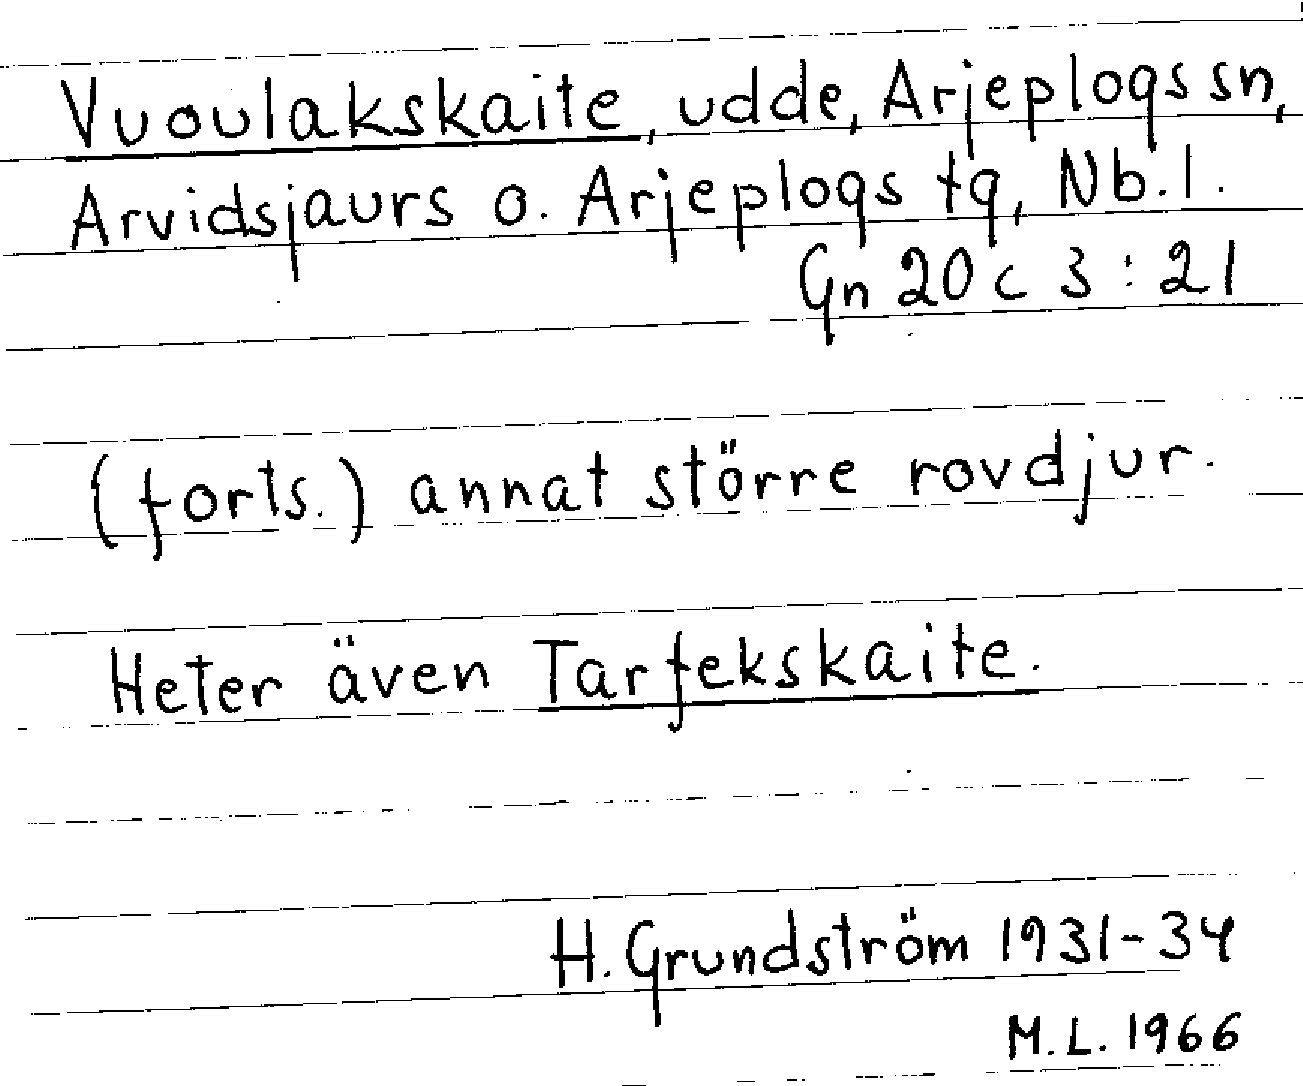 Vuoulakskaite, udde, Arjeplogs sn,
Arvidsjaurs o. Arjeplogs tg, Nb.l.
Gn 20 c 3 : 21
(forts.) annat större rovdjur.
Heter även Tarfekskaite.
H. Grundström 1931-34
M.L. 1966